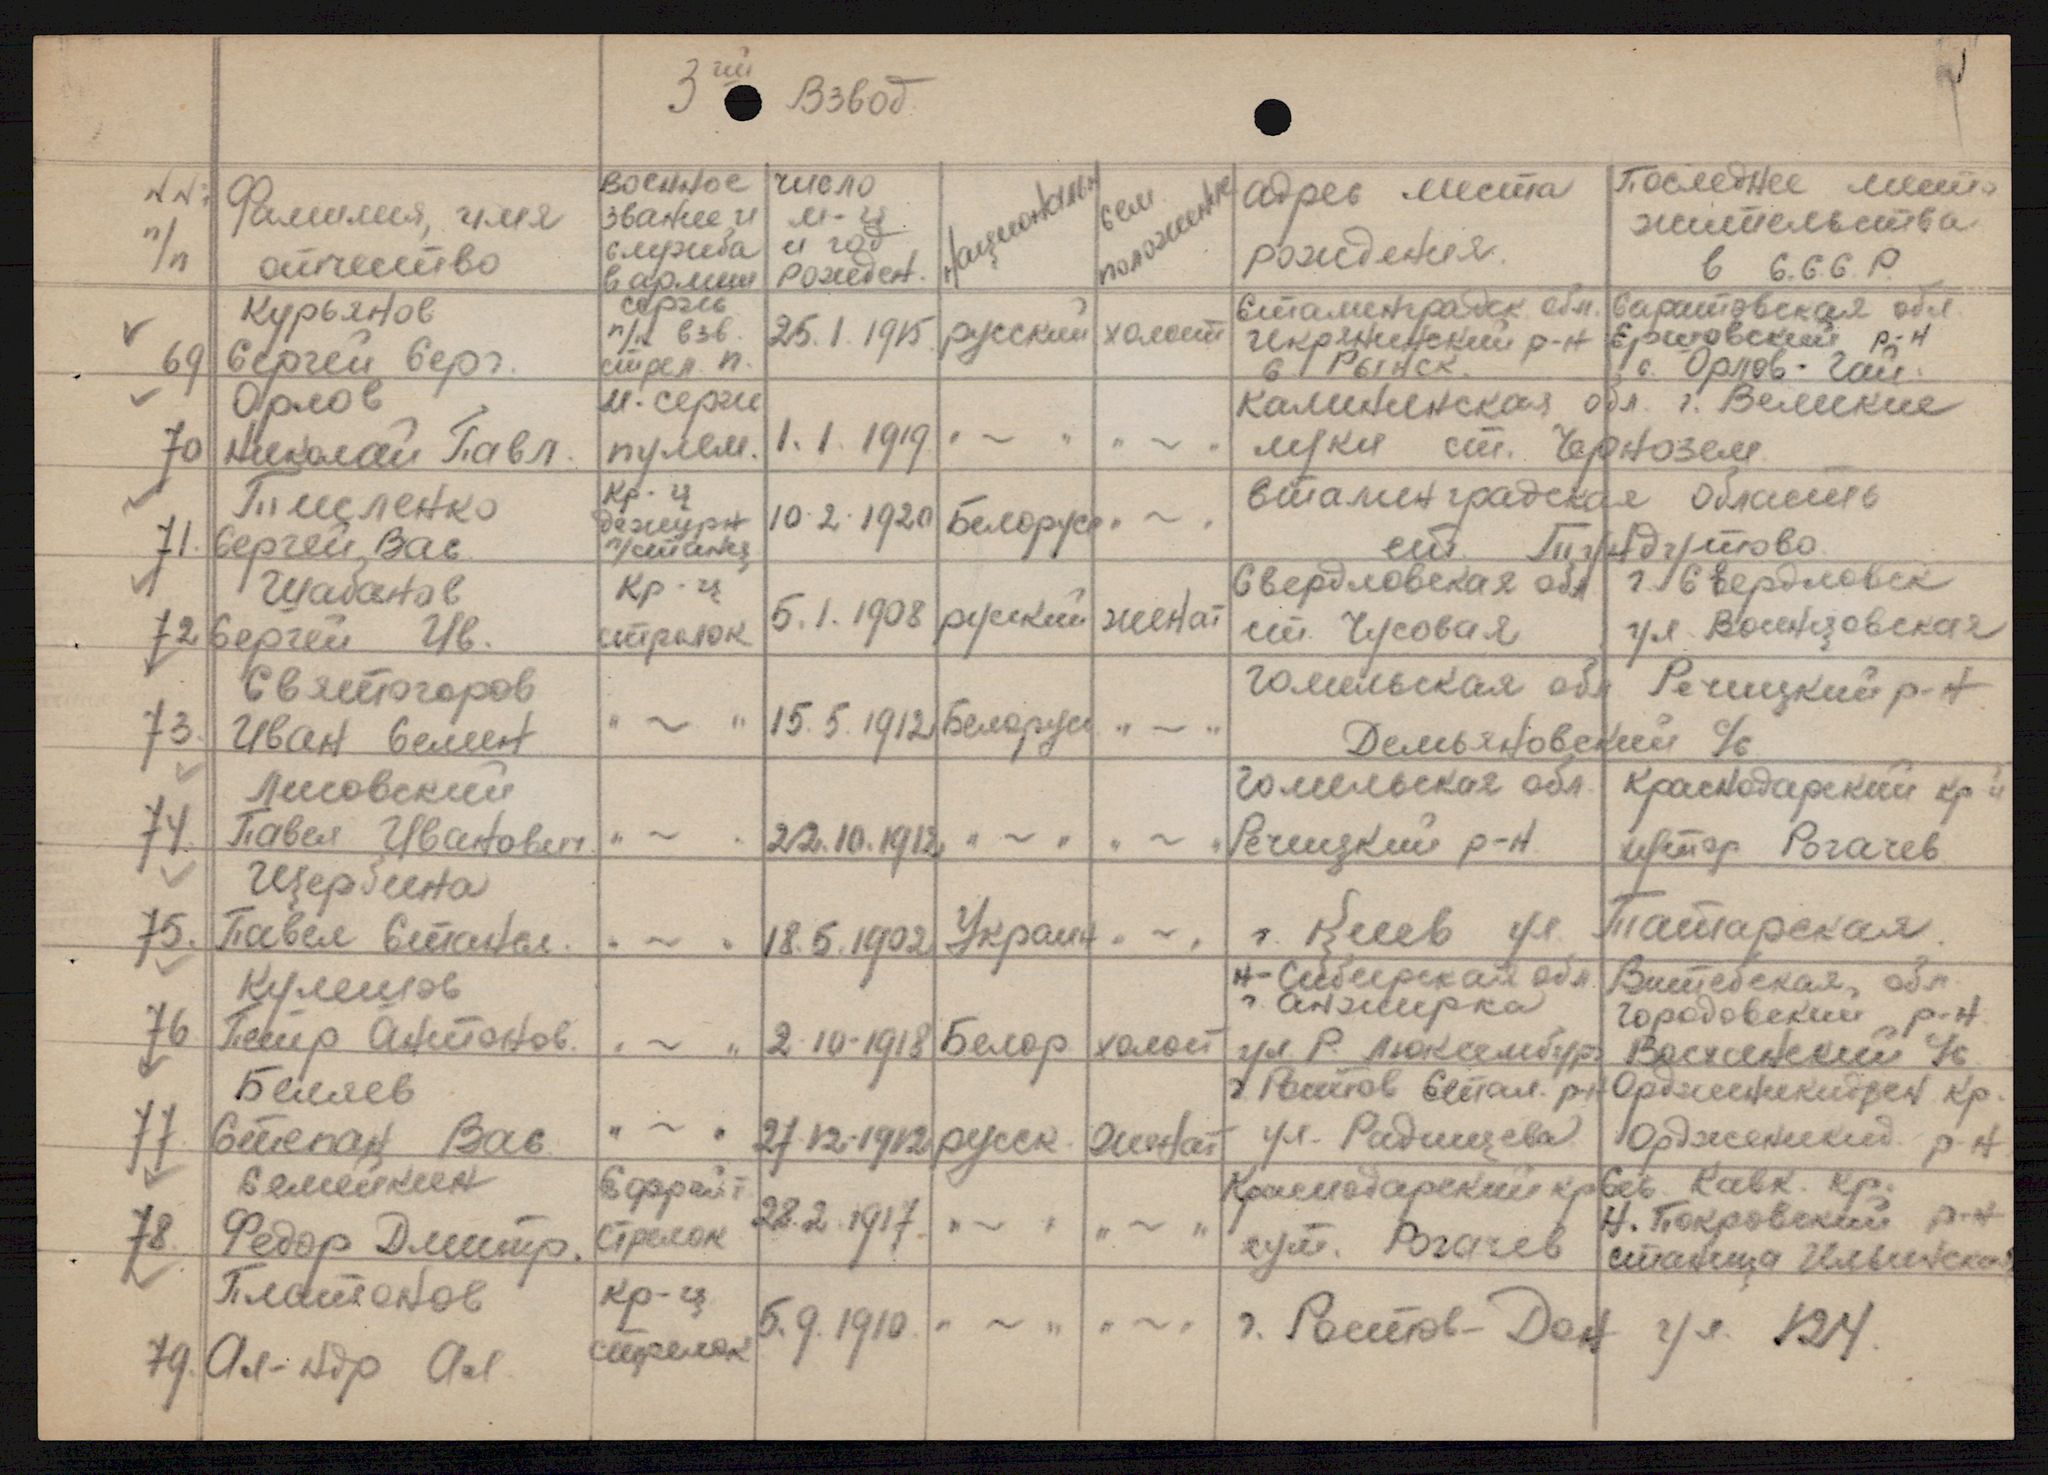 3ий Взвод
NN: п/п
Фамилия, имя отчество
военное звание и служба в армии
число м-ц и год рожден.
национальн
сем. положение
адрес места рождения.
Последнее место жительства в С.С.С.Р.
69 Курьянов Сергей Серг.
сержь п/к взв. стрел. п.
25.1.1915 русский холост
Сталинградск. обл. Икрянинский р-н с. Рынск.
Саратовская обл. Ершовский р-н с. Орлов-Гай.
70 Орлов Николай Павл.
м-серж пулем.
1.1.1919 " ~ " " ~ "
Калининская обл. г. Великие
луки ст. Чернозем
71. Тисленко Сергей Вас
Кр-ц дежурн п/станц
10.2.1920 Белорус " ~ "
Сталинградская область
ст. Тундутово
72 Шабанов Сергей Ив.
Кр-ц стрелок
5.1.1908 русский женат
Свердловская обл ст. Чусовая
г. Свердловск ул. Воинцовская
73. Святогоров Иван Семен
" ~ " 15.5.1912 Белорус " ~ "
Гомельская обл Речицкий р-н
Демьяновский с/с
74. Лисовский Павел Иванович
" ~ " 22.10.1912 " ~ " " ~ "
Гомельская обл. Речицкий р-н
Краснодарский кр й хутор Рогачев
75. Щербина Павел Станисл.
" ~ " 18.5.1902 Украин " ~ "
г. Киев ул. Татарская.
76 Кулешов Петр Антонов.
" ~ " 2-10-1918 Белор холост
Н-Сибирская обл. г. Анжирка ул Р. Люксембург
Витебская обл. Городовский р-н с/с
77. Беляев Степан Вас
" ~ " 27.12.1912 русск. женат
г. Ростов Стал. р-н ул. Радищева
Орджиникидзен кр. Орджоникид р-н
78. Семейкин Федор Дмитр.
Ефрейт Стрелок
28.2.1917 " ~ " " ~ "
Краснодарский кр хут. Рогачев
Сев. Кавк. кр. Н. Покровский р-н станица Ильинская
79. Платонов Ал-ндр Ал
Кр-ц стрелок
5.9.1910. " ~ " " ~ "
г. Ростов-Дон ул. 124.